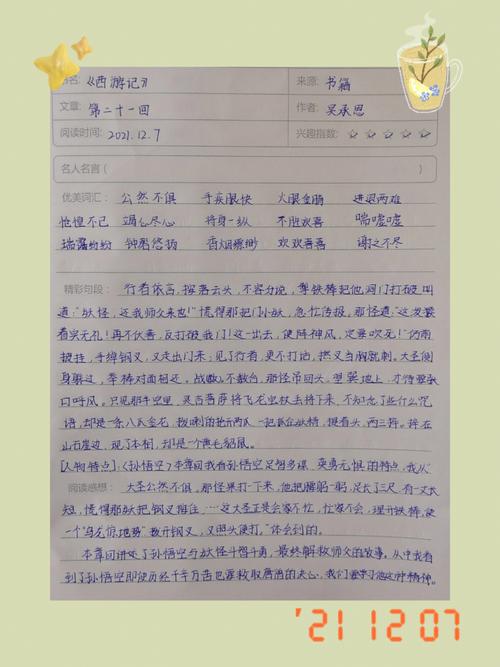 书名: 《西游记》 来源: 书籍
文章: 第二十一回 作者: 吴承恩
阅读时间: 2021.12.7 兴趣指数: ☆ ☆ ☆ ☆ ☆
名人名言( )
优美词汇: 公然不惧 手疾眼快 火眼金睛 进退两难
恓惶不已 竭心尽心 将身一纵 不胜欢喜 嘴嘘嘘
瑞霭纷纷 钟磬悠扬 香烟缥缈 欢欢喜喜 谢之不尽
精彩句段: 行者依言,按落云头,不容分说,掣铁棒把他洞门打破,叫
道:“妖怪,还我师父来也!”慌得那把门小妖,急忙传报。那怪道:“这泼猴
着实无礼!再不伏善,反打破我门!这一出去,使阵神风,定要吹死!”仍前
披挂,手绰钢叉,又走出门来;见了行者,更不打话,撚叉当胸就刺。大圣侧
身躲过,举棒对面相还。战不数合,那怪吊回头,望巽地上,才待要张
口呼风。只见那半空里,灵吉菩萨将飞龙宝杖丢将下来,不知念了些什么咒
语,却是一条八爪金龙,拨喇的抡开两爪,一把抓住妖精,提着头,两三捽,捽在
山石崖边,现了本相,却是一个黄毛貂鼠。
[人物特点]:(孙悟空)本章回我看孙悟空足智多谋、英勇无惧的特点,我从
阅读感想: 大圣公然不惧。那怪果打一下来,他把腰躬一躬,足长了三尺,有一丈长
短,慌得那妖把钢叉按住……这大圣正是会家不忙,忙家不会,理开铁棒,使
一个“乌龙掠地势”拨开钢叉,又照头便打。”体会到的。
本章回讲述了孙悟空与妖怪斗智斗勇,最终解救师父的故事。从中我看
到了孙悟空即使历经千辛万苦也要救取唐僧的决心,我们要学习他这种精神。
'21 12 07